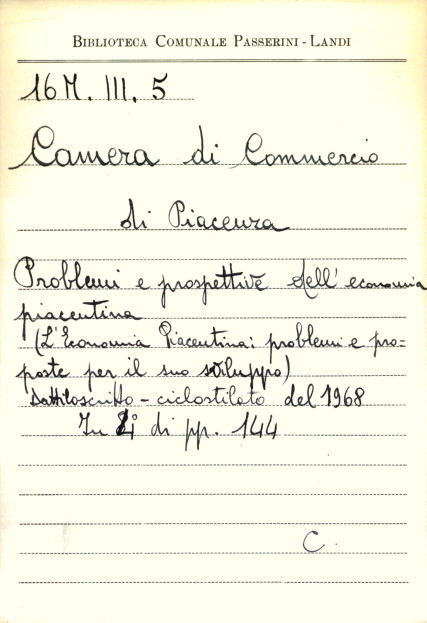 BIBLIOTECA COMUNALE PASSERINI - LANDI
16 M. III. 5
Camera di Commercio
di Piacenza
Problemi e prospettive dell'economia
piacentina
(L'Economia Piacentina: problemi e pro=
poste per il suo sviluppo)
Dattiloscritto - ciclostilato del 1968
In di pp. 144
C.